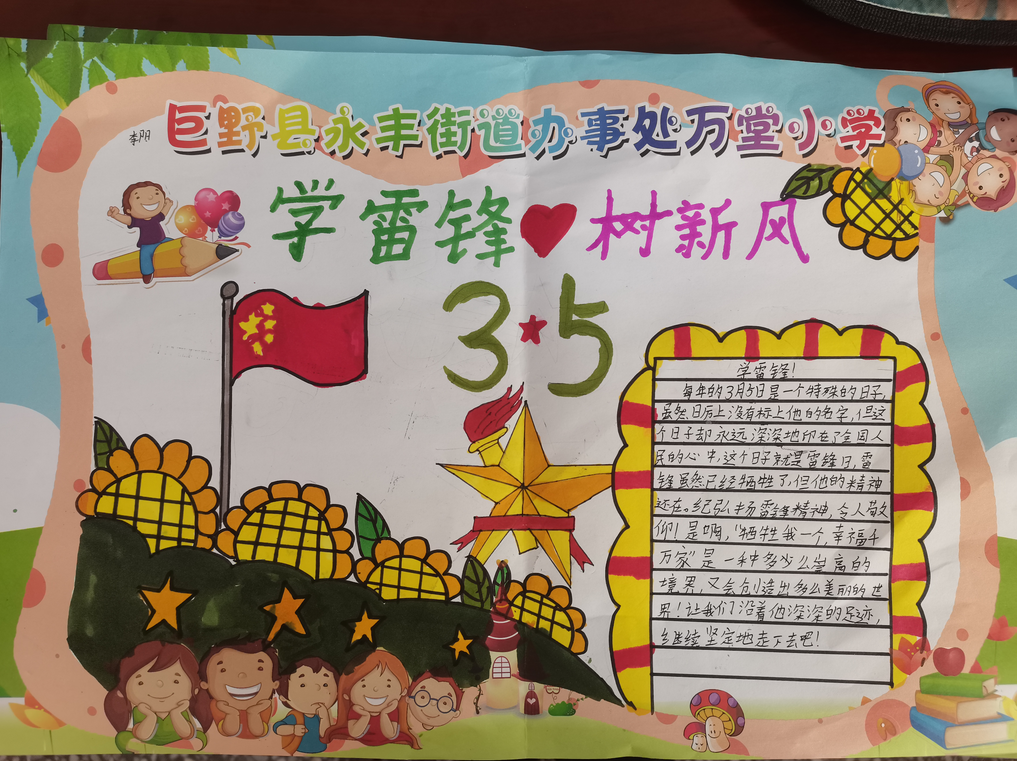 巨野县永丰街道办事处万堂小学
学雷锋 树新风
3·5
学雷锋!
每年的3月5日是一个特殊的日子,
虽然日历上没有标上他的名字,但这
个日子却永远深深地印在了全国人
民的心中,这个日子就是雷锋日,雷
锋虽然已经牺牲了,但他的精神
还在。纪弘扬雷锋精神,令人敬
仰!是啊,"牺牲我一个,幸福千
万家"是一种多少么崇高的
境界,又会创造出多么美丽的世
界!让我们沿着他深深的足迹,
继续坚定地走下去吧!